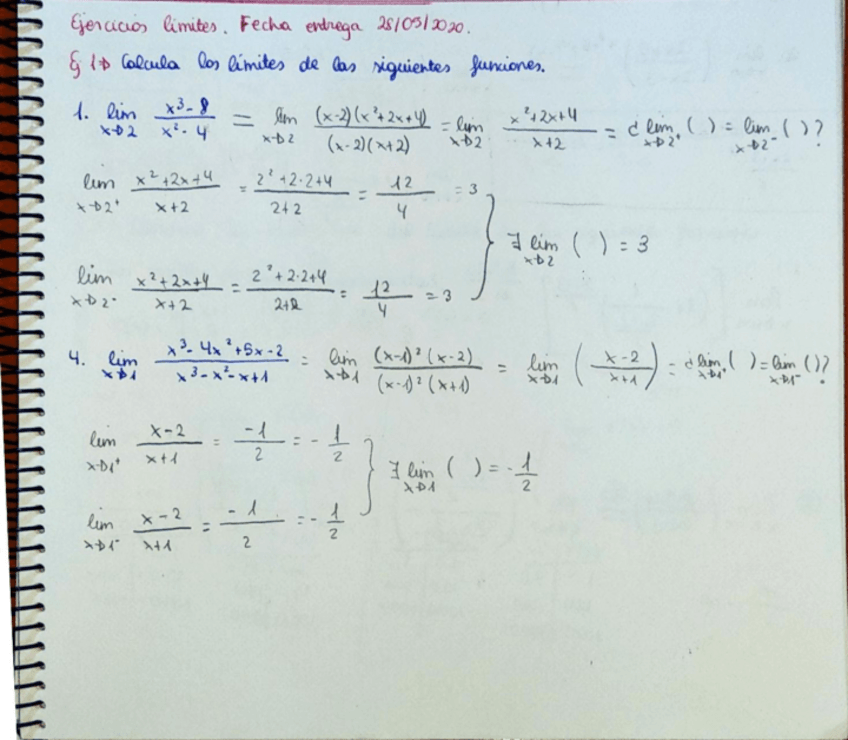 Ejercicios límites. Fecha entrega 28/05/2020.
Ej 1→ Calcula los límites de las siguientes funciones.
1. lim x→2 (x³-8)/(x²-4) = lim x→2 ((x-2)(x²+2x+4))/((x-2)(x+2)) = lim x→2 (x²+2x+4)/(x+2) = ¿lim x→2⁺ ( ) = lim x→2⁻ ( )?
lim x→2⁺ (x²+2x+4)/(x+2) = (2²+2·2+4)/(2+2) = 12/4 = 3
∃ lim x→2 ( ) = 3
lim x→2⁻ (x²+2x+4)/(x+2) = (2²+2·2+4)/(2+2) = 12/4 = 3
4. lim x→1 (x³-4x²+5x-2)/(x³-x²-x+1) = lim x→1 ((x-1)²(x-2))/((x-1)²(x+1)) = lim x→1 ((x-2)/(x+1)) = ¿lim x→1⁺ ( ) = lim x→1⁻ ( )?
lim x→1⁺ (x-2)/(x+1) = -1/2 = -1/2
∃ lim x→1 ( ) = -1/2
lim x→1⁻ (x-2)/(x+1) = -1/2 = -1/2